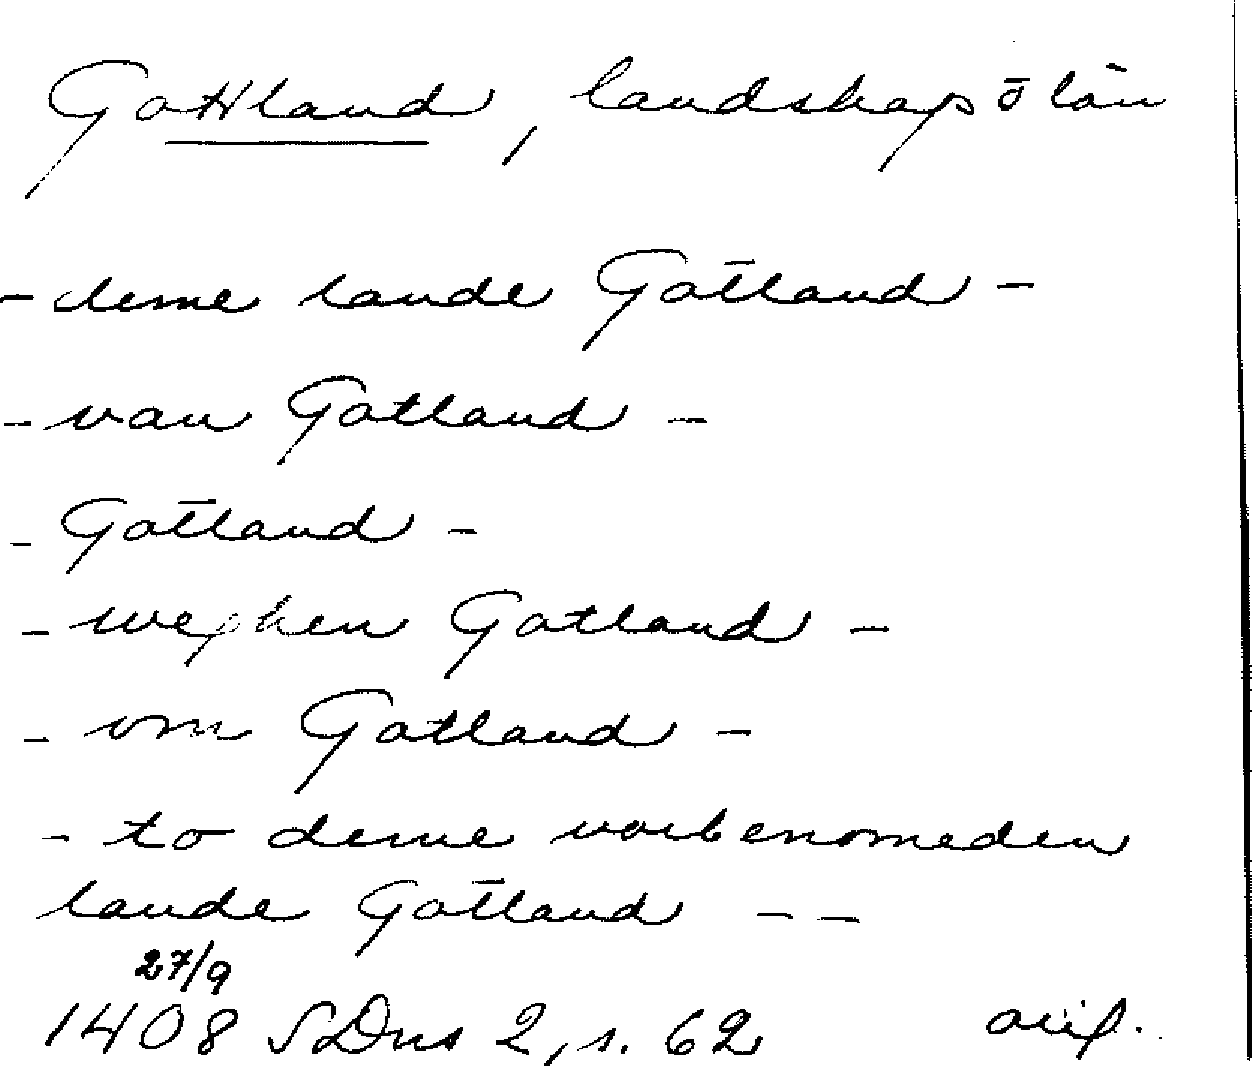 Gottland, landskap o län
- deme lande Gotland -
- van Gotland -
- Gotland -
- weghen Gotland -
- vm Gotland -
- to deme vorbenomeden
lande Gotland - -
27/9
1408 SDns 2, s. 62 avs.